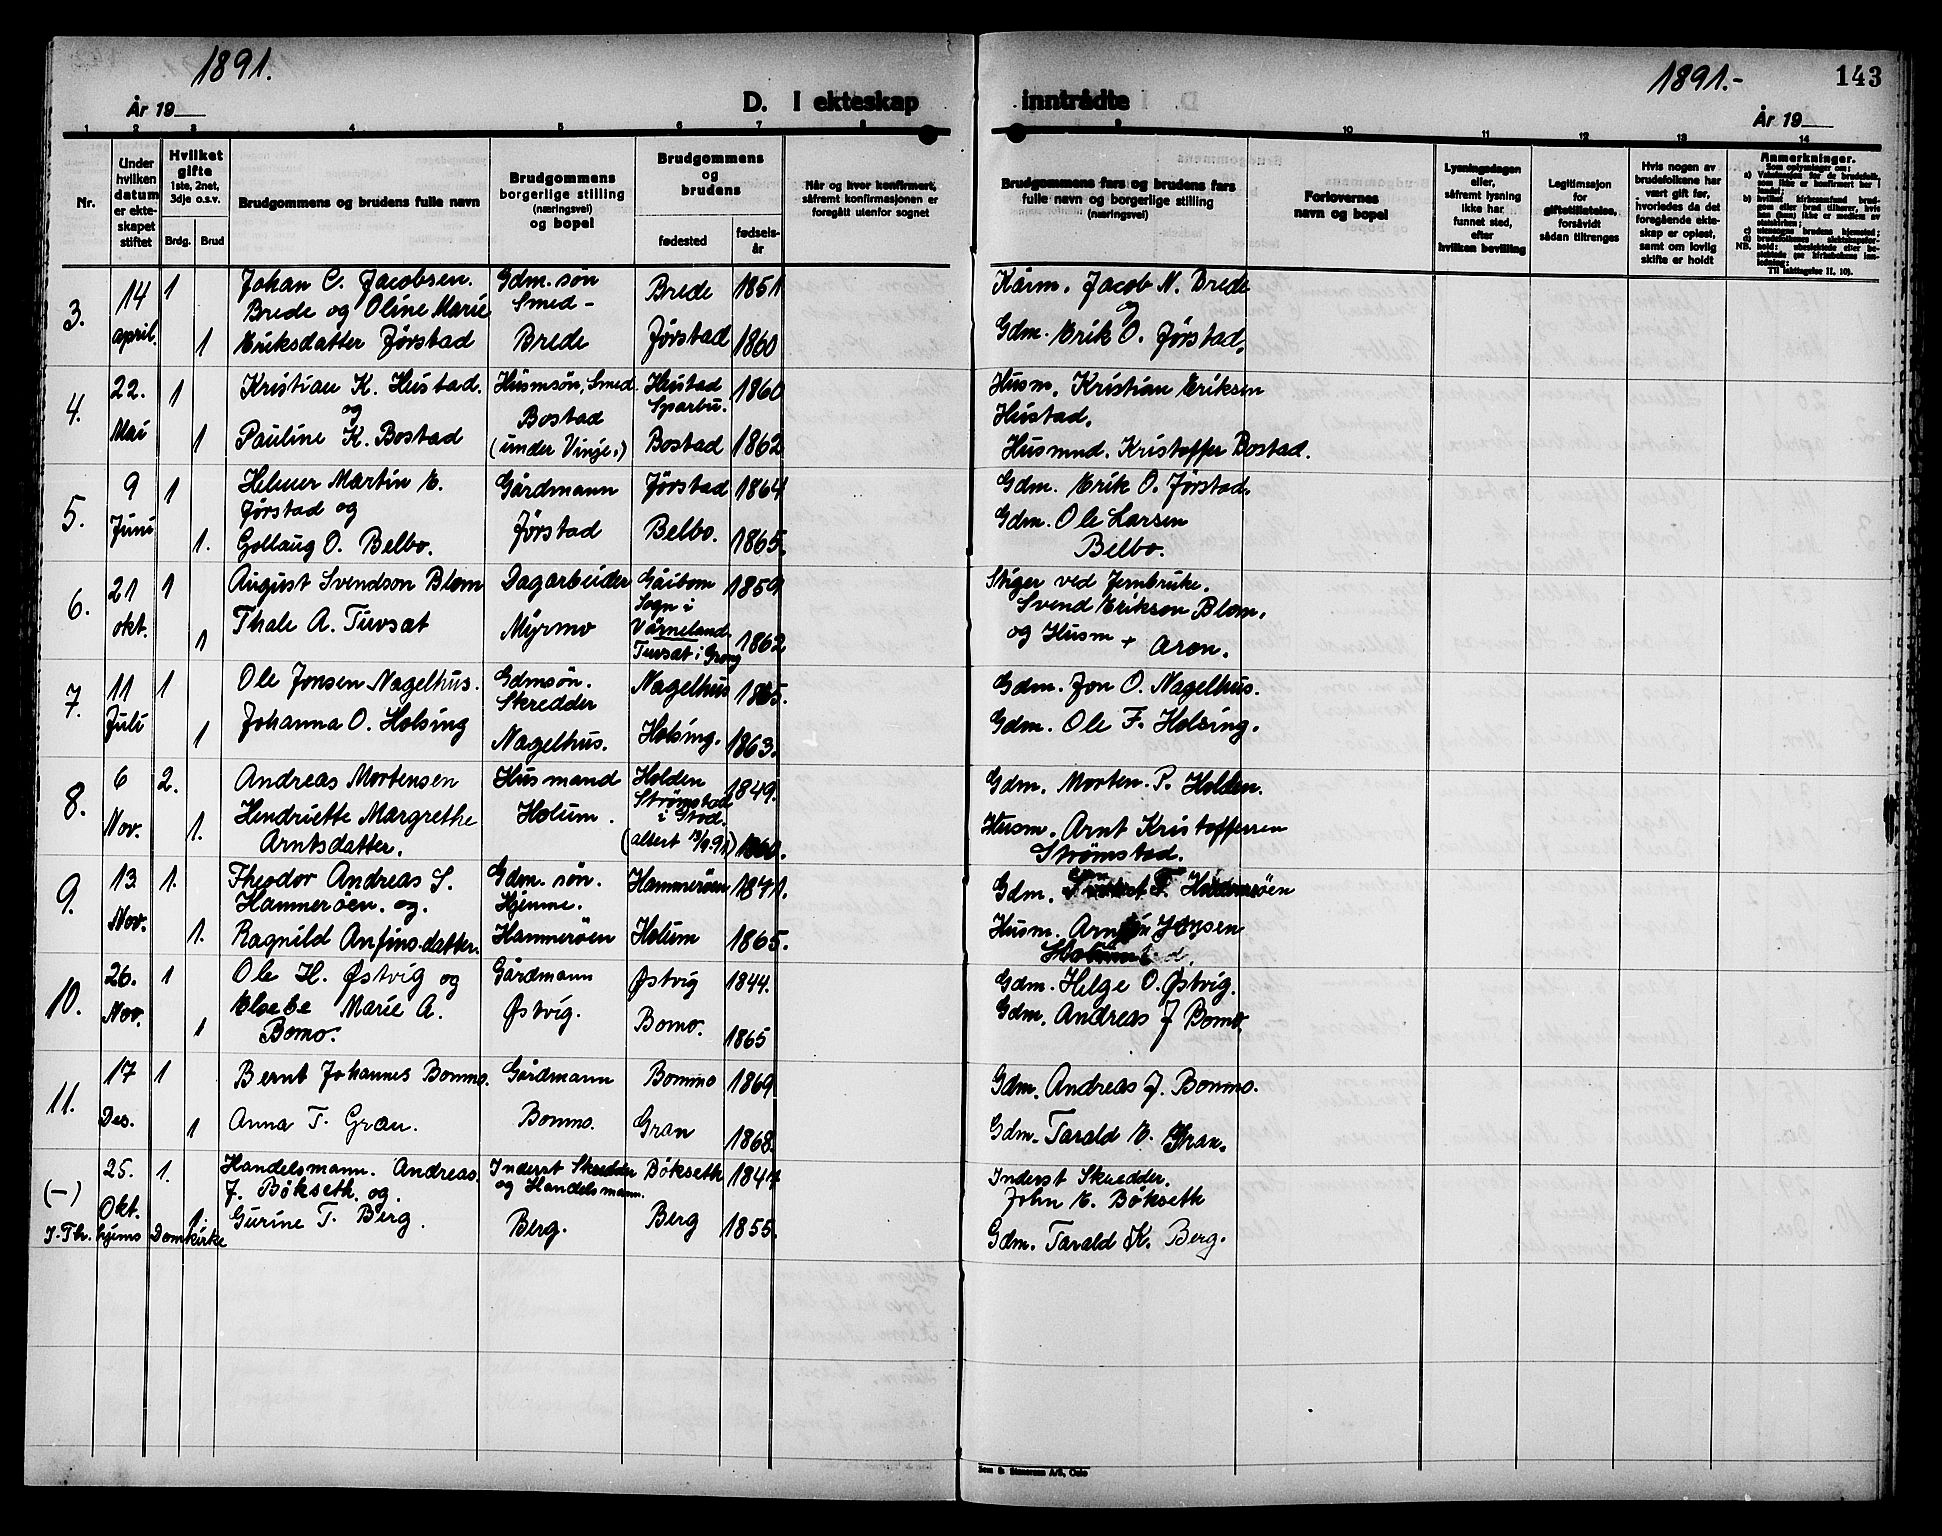 1891.
År 19
D. I ekteskap
1
2
3
4
5
6
7
8
Nr.
Under hvilken datum er ekteskapet stiftet
Hvilket gifte
1ste, 2net, 3dje o.s.v.
Brdg.
Brud
Brudgommens og brudens fulle navn
Brudgommens borgerlige stilling (næringsvei) og bopel
Brudgommens og brudens
fødested
fødselsår
Når og hvor konfirmert, såfremt konfirmasjonen er foregått utenfor sognet
3.
14 april
1
1
Johan C. Jacobsen.
Brede og Oline Marie
Eriksdatter Jørstad
Gdm. søn
Smed -
Brede
Brede
Jørstad
1851
1860
4.
22. Mai
1
1
Kristian K. Hustad.
og
Pauline K. Bostad
Husmsøn, Smed
Bostad
(under Vinje.)
Hustad
Sparbu.
Bostad
1860
1862
5.
9 Juni
1
1.
Helmer Martin E.
Jørstad og
Gollaug O. Belbo.
Gårdmann
Jørstad
Jørstad
Belbo.
1864
1865.
6.
21 okt.
1
1
August Svendson Blom
Thale A. Turvsat
Dagarbeider
Myrmo
Sogn i
Värneland.
Tursat i Grong
1859
1862
7.
11 Juli
1
1
Ole Jonsen Nagelhus.
Johanna O. Holsing
Gdmsøn.
Skredder
Nagelhus.
Nagelhus
Holsing.
1865.
1863.
8.
6 Nov.
2.
1.
Andreas Mortensen
Hendriette Margrethe
Arntsdatter.
Husmand
Holum.
Holden
Strømstad
i Stod.
1849.
1860.
9.
13. Nov.
1.
1.
Theodor Andreas S.
Hammerøen. og.
Ragnild Anfinsdatter.
Gdm. søn.
Hjemme.
Hammerøen
Hammerøen
Holum
1841.
1865.
10.
26. Nov.
1
1
Ole H. Østvig og
Marie A.
Bomo.
Gårdmann
Østvig.
Østvig
Bomo.
1844.
1865
11.
17 Des.
1
1
Bernt Johannes Bommo.
Anna T. Gran.
Gårdmann
Bommo.
Bommo
Gran
1869
1868.
(-)
25. Okt.
1.
1.
I. Th.hjems Domkirke
Handelsmann. Andreas
J. Bökseth. og.
Gurine T. Berg.
Inderst Skredder
og Handelsmann.
Berg.
Bökseth
Berg
1847
1855.
1891.-
143
inntrådte
År 19
9
10
11
12
13
14
Brudgommens fars og brudens fars fulle navn og borgerlige stilling (næringsvei)
Forlovernes navn og bopel
Lysningsdagen eller, såfremt lysning ikke har funnet sted, efter hvilken bevilling
Legitimasjon for giftetillatelse, forsåvidt sådan tiltrenges
Hvis nogen av brudefolkene har vært gift før, hvorledes da det foregående ekteskap er opløst, samt om lovlig skifte er holdt
Anmerkninger.
Kårm. Jacob N. Brede
og
Gdm. Erik O. Jørstad.
Husm. Kristian Eriksen
Hustad.
Husmnd. Kristoffer Bostad.
Gdm. Erik O. Jørstad.
Gdm. Ole Larsen
Belbo.
Stiger ved Jernbruke.
Svend Erikson Blom.
og Husm + Aron.
Gdm. Jon O. Nagelhus.
Gdm. Ole F. Holsing.
Gdm. Morten. P. Holden.
Husm. Arnt Kristoffersen
Strømstad.
Gdm.
Husm.
Gdm. Helge O. Østvig.
Gdm. Andreas J Bomo.
Gdm. Andreas J. Bommo.
Gdm. Tarald E. Gran.
Inderst Skredder.
John E. Bökseth
Gdm. Tarald K. Berg.